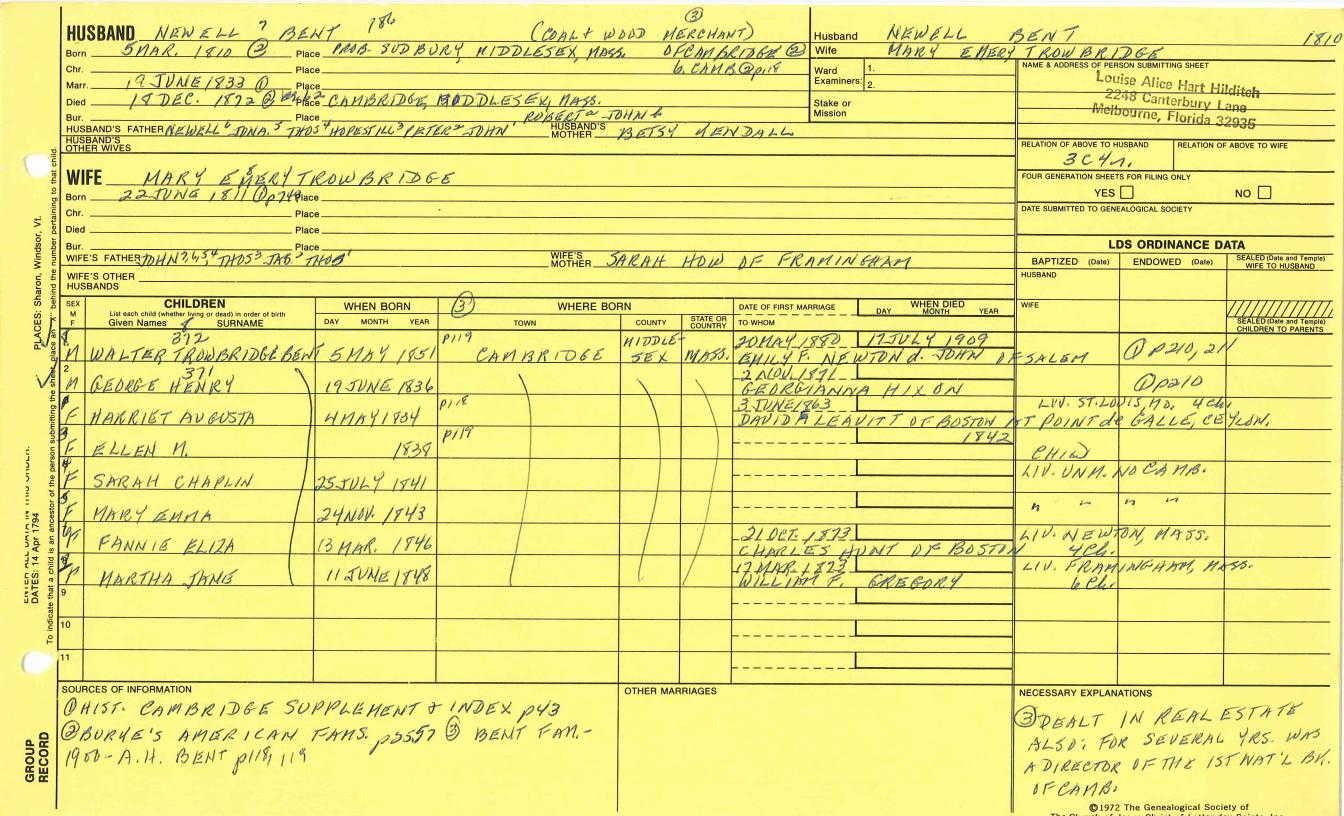 HUSBAND NEWELL 7 BENT 186 (COAL & WOOD MERCHANT) ③
Born 5 MAR. 1810 ② Place PROB. SUDBURY, MIDDLESEX, MASS. OF CAMBRIDGE ②
Chr. Place 6. CAMB ② p118
Marr. 19 JUNE 1833 ① Place
Died 18 DEC. 1872 ② Place CAMBRIDGE, MIDDLESEX, MASS.
Bur. Place ROBERT JOHN
HUSBAND'S FATHER NEWELL 6 JONA. 5 THOS 4 HOPESTILL 3 PETER 2 JOHN 1 HUSBAND'S MOTHER BETSY KENDALL
HUSBAND'S OTHER WIVES
Husband NEWELL BENT 1810
Wife MARY EMERY TROWBRIDGE
Ward Examiners: 1. 2.
Stake or Mission
NAME & ADDRESS OF PERSON SUBMITTING SHEET
Louise Alice Hart Hilditch
2248 Canterbury Lane
Melbourne, Florida 32935
RELATION OF ABOVE TO HUSBAND RELATION OF ABOVE TO WIFE
3C4r.
FOUR GENERATION SHEETS FOR FILING ONLY
YES NO
DATE SUBMITTED TO GENEALOGICAL SOCIETY
WIFE MARY EMERY TROWBRIDGE
Born 22 JUNE 1811 ① Place
Chr. Place
Died Place
Bur. Place
WIFE'S FATHER JOHN 7,6,5,4 THOS 3 JAS 2 THOS 1 WIFE'S MOTHER SARAH HOW OF FRAMINGHAM
WIFE'S OTHER HUSBANDS
LDS ORDINANCE DATA
BAPTIZED (Date) ENDOWED (Date) SEALED (Date and Temple) WIFE TO HUSBAND
HUSBAND
WIFE
SEALED (Date and Temple) CHILDREN TO PARENTS
SEX M F CHILDREN WHEN BORN ③ WHERE BORN DATE OF FIRST MARRIAGE WHEN DIED
List each child (whether living or dead) in order of birth
Given Names 8 SURNAME DAY MONTH YEAR TOWN COUNTY STATE OR COUNTRY TO WHOM DAY MONTH YEAR
372 p119 MIDDLE- 20 MAY 1880 17 JULY 1909
M WALTER TROWBRIDGE BENT 5 MAY 1851 CAMBRIDGE SEX MASS. EMILY F. NEWTON d. JOHN OF SALEM ① p210, 211
2 371 2 NOV. 1871
M GEORGE HENRY 19 JUNE 1836 GEORGIANNA HIXON ① p210
p118 3 JUNE 1863 LIV. ST. LOUIS, MO. 4 Ch.
F HARRIET AUGUSTA 4 MAY 1834 DAVID LEAVITT OF BOSTON AT POINT de GALLE, CEYLON.
3 p119 1842
F ELLEN M. 1838 CHILD
4
F SARAH CHAPLIN 25 JULY 1841 LIV. UNM. NO CAMB.
5
F MARY EMMA 24 NOV. 1843 " " " "
21 OCT. 1873 LIV. NEWTON, MASS.
FANNIE ELIZA 13 MAR. 1846 CHARLES HUNT OF BOSTON 4 Ch.
LIV. FRAMINGHAM, MASS.
MARTHA JANE 11 JUNE 1848 WILLIAM F. GREGORY 6 Ch.
9
10
11
SOURCES OF INFORMATION
① HIST. CAMBRIDGE SUPPLEMENT & INDEX p43
② BURKE'S AMERICAN FAMS. p2557 ③ BENT FAM. -
1900 - A.H. BENT p118, 119
OTHER MARRIAGES
NECESSARY EXPLANATIONS
③ DEALT IN REAL ESTATE
ALSO; FOR SEVERAL YRS. WAS
A DIRECTOR OF THE 1ST NAT'L BK.
OF CAMB.
©1972 The Genealogical Society of
PLACES: Sharon, Windsor, Vt.
DATES: 14 Apr 1794
GROUP RECORD